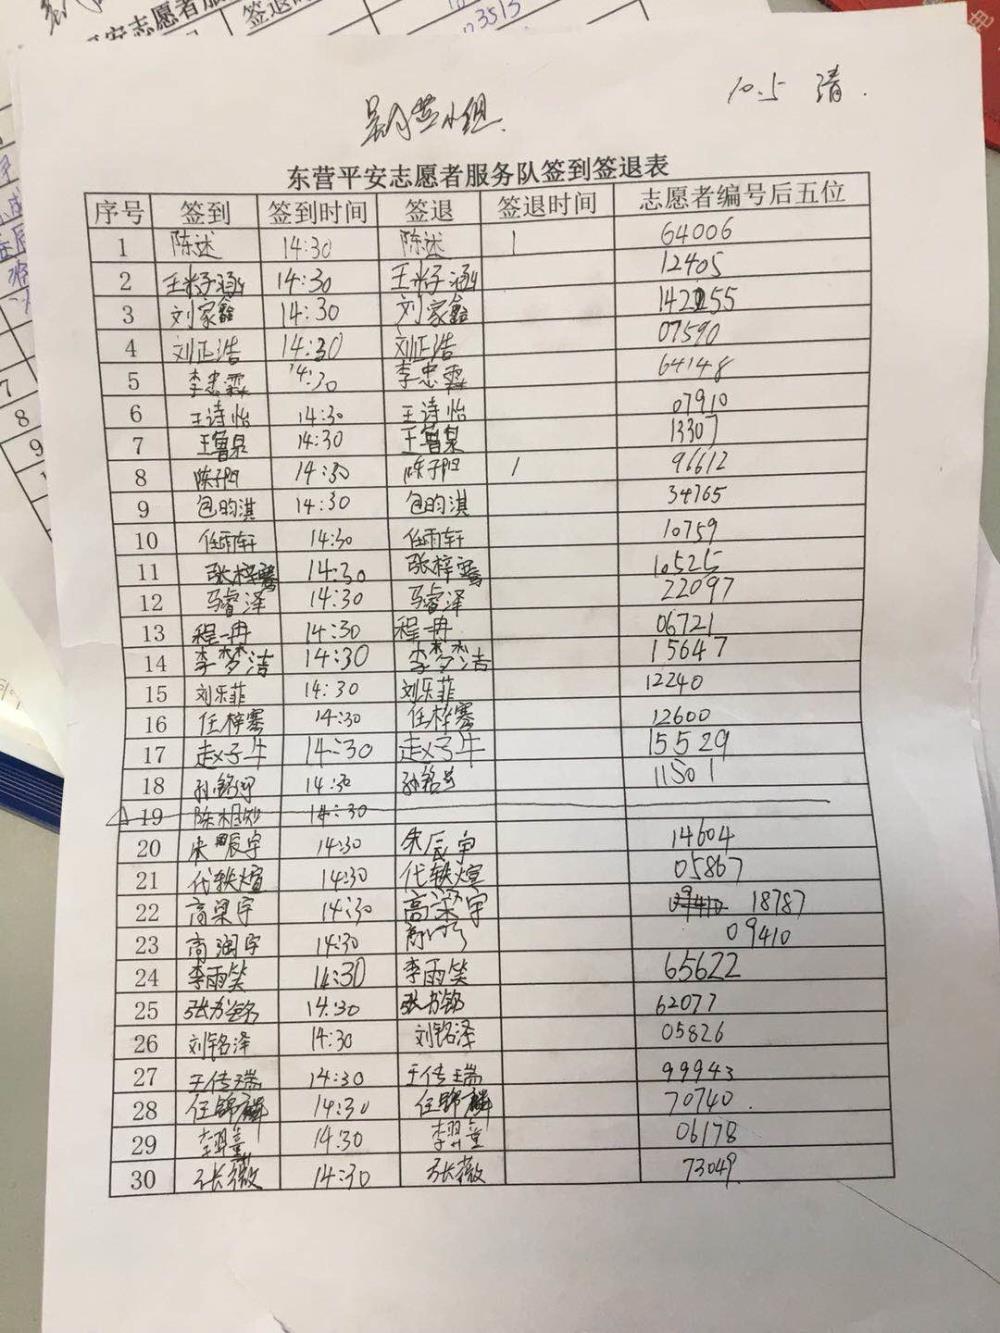 平安志愿者服
签退
3513
10.5 清.
小组
东营平安志愿者服务队签到签退表
序号 签到 签到时间 签退 签退时间 志愿者编号后五位
1 陈述 14:30 陈述 1 64006
2 王米子涵 14:30 王米子涵 12405
3 刘家鑫 14:30 刘家鑫
4 刘正浩 14:30 刘正浩 07590
5 李忠霖 14:30 李忠霖 64148
6 王诗怡 14:30 王诗怡 07910
7 王鲁泉 14:30 王鲁泉 13307
8 14:30 1 96612
9 包昀淇 14:30 包昀淇 34765
10 任雨轩 14:30 任雨轩 10759
11 张梓骞 14:30 张梓骞 10525
12 马睿泽 14:30 马睿泽 22097
13 程一冉 14:30 程一冉 06721
14 李梦洁 14:30 李梦洁 15647
15 刘乐菲 14:30 刘乐菲 12240
16 任梓骞 14:30 任梓骞 12600
17 赵子牛 14:30 赵子牛 15529
18 14:30 11501
19 14:30
20 朱辰宇 14:30 朱辰宇 14604
21 代轶煊 14:30 代轶煊 05867
22 高梁宇 14:30 高梁宇 09410 18787
23 高润宇 14:30 09410
24 李雨笑 14:30 李雨笑 65622
25 张书铭 14:30 张书铭 62077
26 刘铭泽 14:30 刘铭泽 05826
27 王传瑞 14:30 王传瑞 99943
28 任锦麟 14:30 任锦麟 70740
29 14:30 06178
30 张薇 14:30 张薇 73049
7
8
9